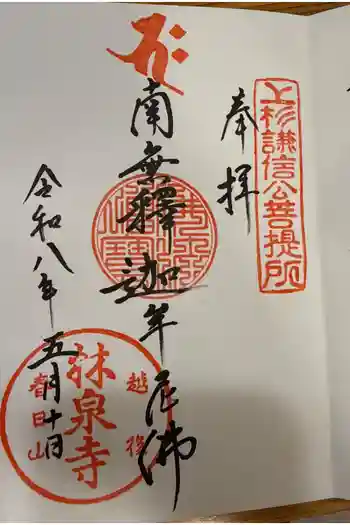 上杉謙信公菩提所
奉拝
南無釋迦牟尼佛
令和八年五月十日
越後
林泉寺
春日山